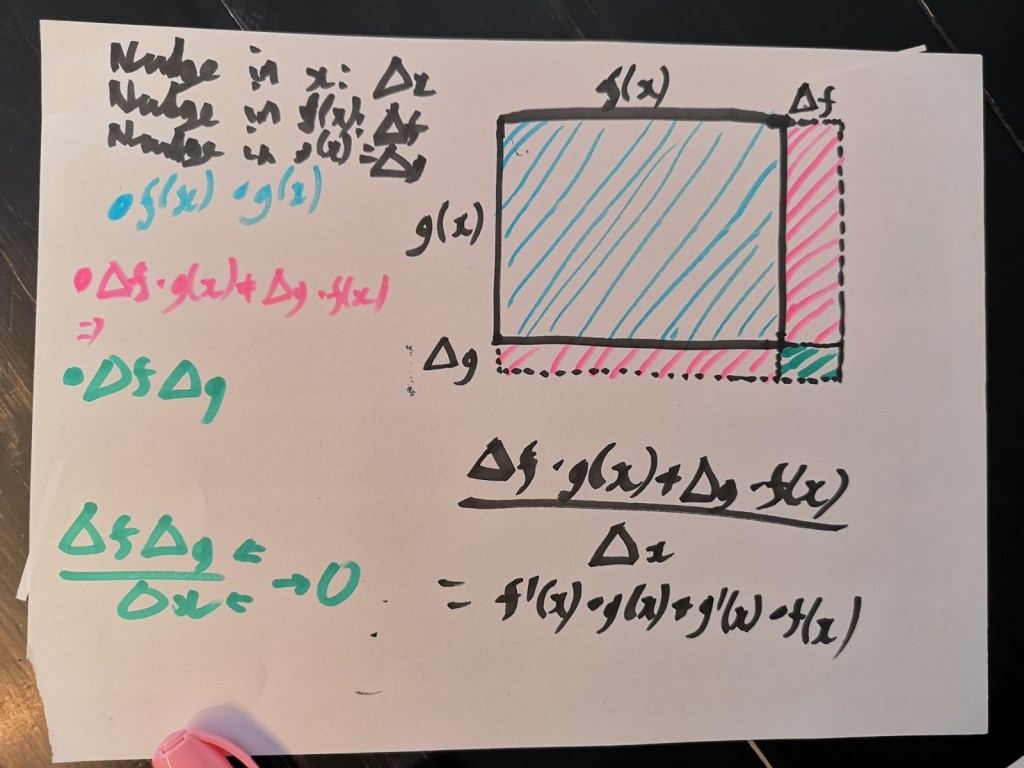 Nudge in x: Δx
Nudge in f(x): Δf
Nudge in g(x) = Δg
• f(x) • g(x)
• Δf · g(x) + Δg · f(x)
=>
• Δf Δg
f(x)
Δf
g(x)
Δg
Δf Δg ←
Δx ← → 0
Δf · g(x) + Δg · f(x)
Δx
= f'(x) • g(x) + g'(x) • f(x)